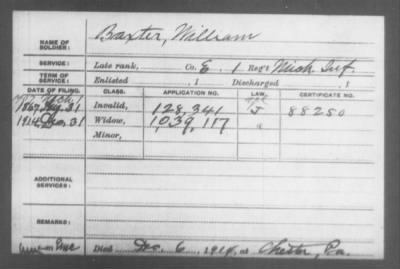 NAME OF SOLDIER: Baxter, William
SERVICE: Late rank, Co. E. 1 Reg't Mich Inf.
TERM OF SERVICE: Enlisted , 1 Discharged , 1
DATE OF FILING. CLASS. APPLICATION NO. LAW. CERTIFICATE NO.
1867, 31 Invalid, 128,341 88250
1914, Dec. 31 Widow, 1,039,117 "
Minor,
ADDITIONAL SERVICES:
REMARKS:
Died Dec. 6, 1914, at Chester, Pa.